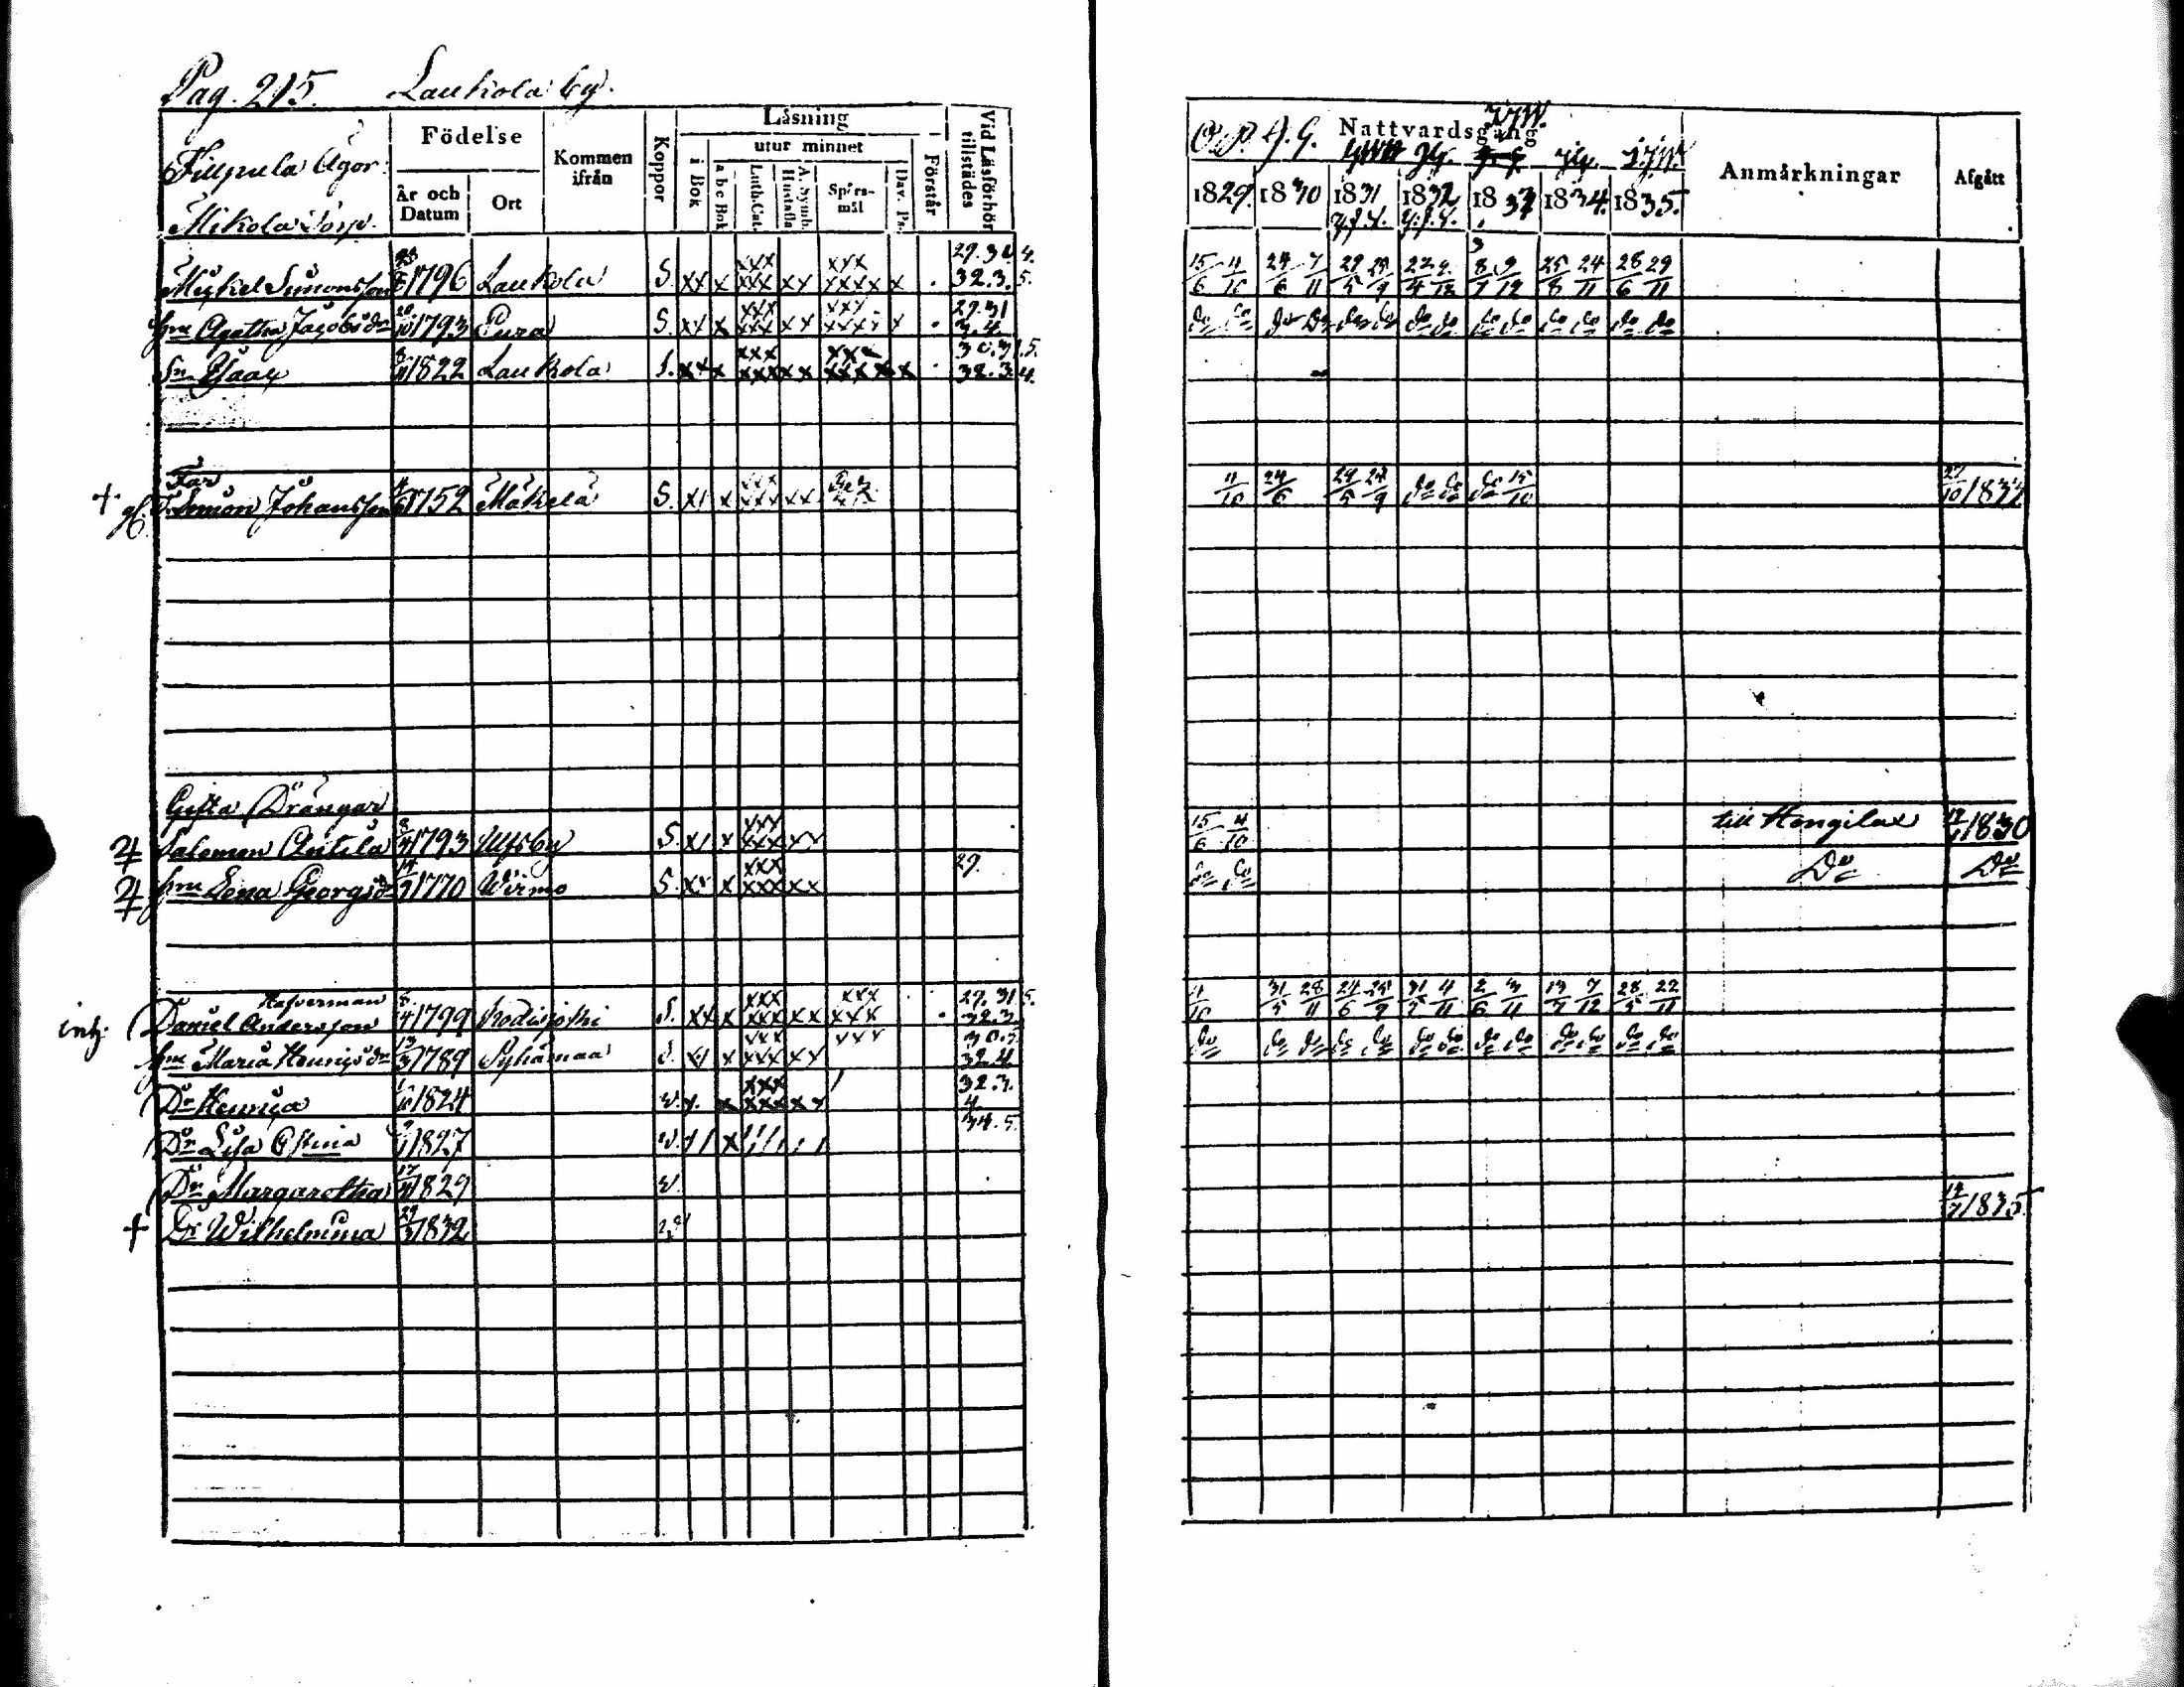 Pag. 215. Laukola by.
Fillpula Ägor.
Mikola Torp.
Födelse
År och Datum
Ort
Kommen ifrån
Koppor
Läsning
utur minnet
i Bok
a b c Bok
Luth. Cat.
A. Symb. Hustafla
Spörs-mål
Dav. Ps.
Förstår
Vid Läsförhör tillstädes
Nattvardsgång
1829. 1830 1831 1832 1833 1834. 1835.
Anmärkningar
Afgått
Michel Simonsson 1796 Laukola S. xx x xxx xxx xx xxx xxxx x 29. 30 4. 32. 3. 5. 15/6 11/10 24/6 7/11 22/4 25/8 24/11 28/6 29/11
hru Agatha Jacobsdr 20/10 1793 Eura S. xx x xxx xxx xx xxx xxxx x 29. 31 3. 4. do do do do do do do do do do do do do do
Sn Isaac 1822 Laukola S. xx x xxx xxx xx xxx xxxx x 30. 31. 5. 32. 3. 4.
Far
+ gl. F. Simon Johansson 1752 Mäkelä S. xx x xxx xxx xx 11/10 24/6 24/5 24/9 do do do 15/10 27/10 1833
Gifta Drängar
Salomon Antila 8/11 1793 Ulfsby S. xx x xxx xxx xx 15/6 11/10 till Hongilax 1830
hru Lena Georgsdr 1770 Wirmo S. xx x xxx xxx xx 29. do do Do Do
inh: Hafverman
Daniel Andersson 8/4 1799 Kodisjoki S. xx x xxx xxx xx xxx xxx 29. 31 5. 32. 3. 11/10 31/5 28/11 24/6 24/9 31/5 4/11 2/6 3/11 13/7 7/12 28/5 22/11
hru Maria Henricsdr 13/3 1789 Pyhämaa S. x x xxx xxx xx xxx 30. 5 32. 4 do do do do do do do do do do do do do
Dr Henrica 1/10 1824 v. x. x xxx xxx xx 32. 3. 4
Dr Lisa Stina 1827 v. x 34. 5.
Dr Margaretha 17/11 1829 v.
+ Dr Wilhelmina 29/3 1832 14/7 1835